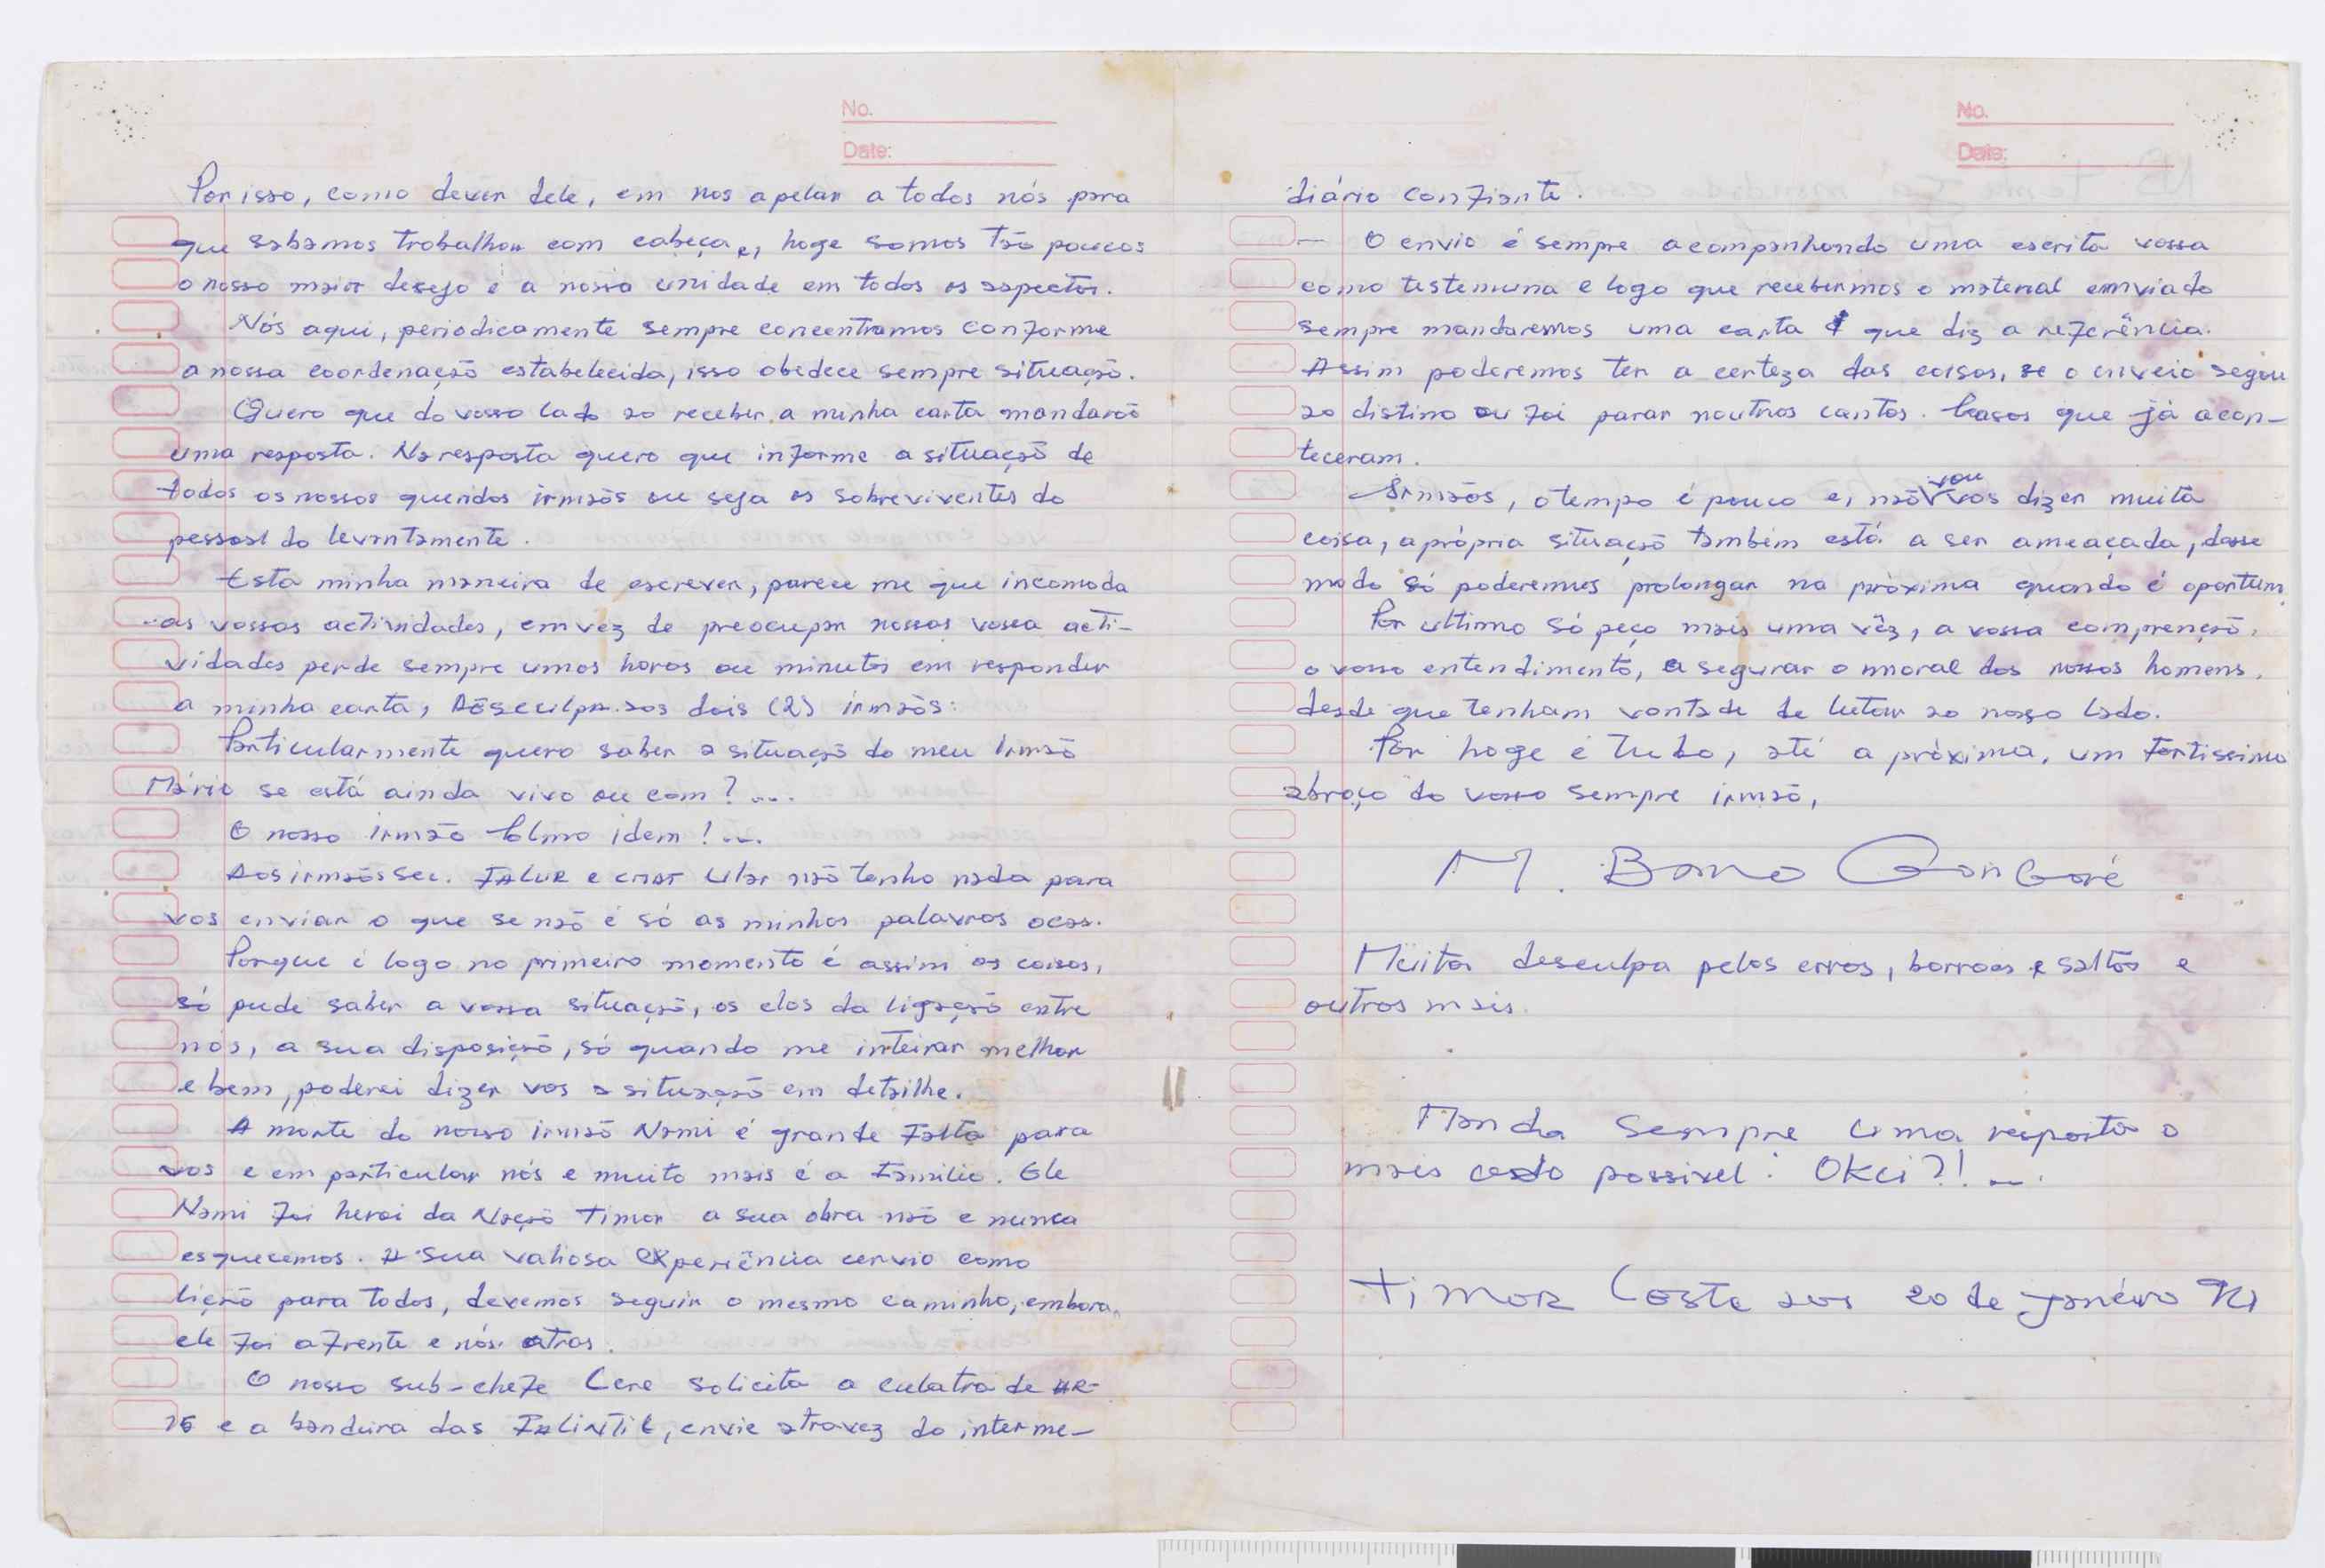 No.
Date:
Por isso, como dever dele, em nos apelar a todos nós para
que sabamos trabalhar com cabeça e, hoge somos tão poucos
o nosso maior desejo é a nossa unidade em todos os aspectos.
Nós aqui, periodicamente sempre concentramos conforme
a nossa coordenação estabelecida, isso obedece sempre situação.
Quero que do vosso lado ao receber a minha carta mandarão
uma resposta. Na resposta quero que informe a situação de
todos os nossos queridos irmãos ou seja os sobreviventes do
pessoal do levantamente.
Esta minha maneira de escrever, parece me que incomoda
as vossas actividades, em vez de preocupar nossas vossa acti-
vidades perde sempre umas horas ou minutos em responder
a minha carta, Desculpa aos dois (2) irmãos:
Particularmente quero saber a situação do meu Irmão
Mário se está ainda vivo ou com? ...
O nosso irmão Colmo idem! ...
Aos irmãos Sec. FALUR e Ular não tenho nada para
vos enviar o que se não é só as minhas palavras ocas.
Porque é logo no primeiro momento é assim as coisas,
só pude saber a vossa situação, os elos da ligação entre
nós, a sua disposição, só quando me inteirar melhor
e bem, poderei dizer vos a situação em detailhe.
A morte do nosso irmão Nami é grande Falta para
vos e em particular nós e muito mais é a Familia. Ele
Nami foi heroi da Nação Timor a sua obra não e nunca
esquecemos. A sua valiosa experiência cervio como
lição para todos, devemos seguir o mesmo caminho, embora,
ele foi afrente e nós atras.
O nosso sub-chefe Cere solicita a culatra de AR-
15 e a bandeira das FALINTIL, envie atravez do interme-
No.
Date:
diário confiante.
- O envio é sempre acompanhando uma escrita vossa
como testemuna e logo que recebermos o material emviado
sempre mandaremos uma carta que diz a referência.
Assim poderemos ter a certeza das coisas, se o enveio segou
ao distino ou foi parar noutros cantos. Casos que já acon-
teceram.
Irmãos, o tempo é pouco e, não vou vos dizer muita
coisa, a própria situação também está a ser ameaçada, desse
modo só poderemos prolongar na próxima quando é oportuno
Por ultimo só peço mais uma vêz, a vossa comprenção,
o vosso entendimento, a segurar o moral dos nossos homens,
desde que tenham vontade de lutar ao nosso lado.
Por hoge é tudo, até a próxima, um Fortissimo
abraço do vosso sempre irmão,
M.
Muita desculpa pelos erros, borroes e saltos e
outros mais.
Manda sempre uma resposta o
mais cedo possivel. Okei?! ...
Timor Leste aos 20 de Janeiro